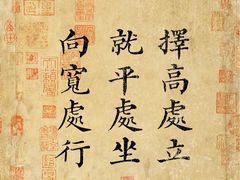 擇高處立
就平處坐
向寬處行